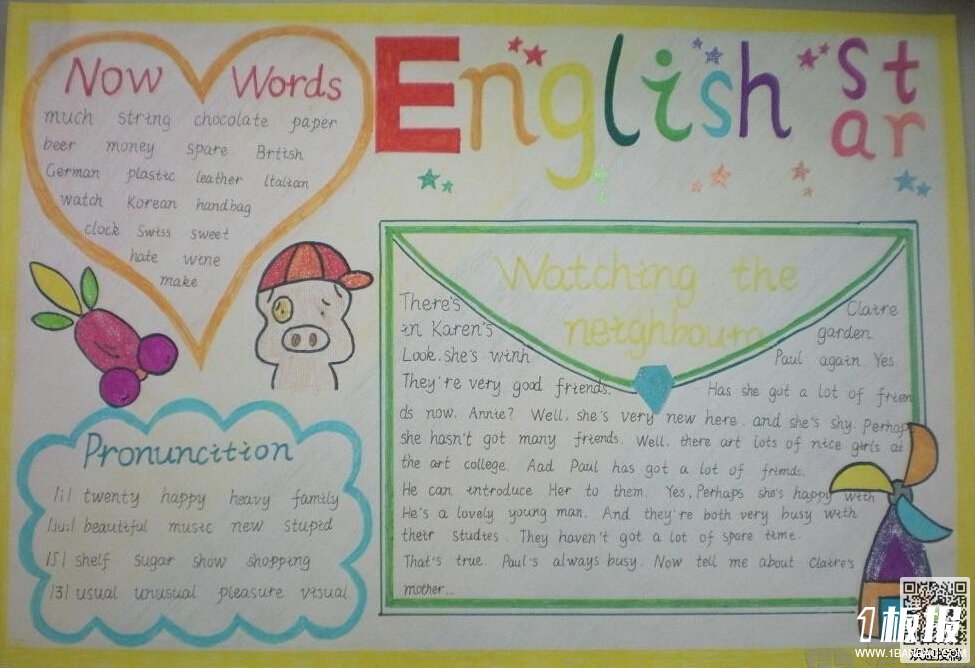 Now Words
much string chocolate paper
beer money spare Brtish
German plastic leather ltalian
watch Korean handbag
clock Swiss sweet
hate wine
make
English
st
ar
Watching the
neighbours
There's Claire
in Karen's garden.
Look. she's winh Paul again. Yes.
They're very good friends. Has she got a lot of frien
ds now. Annie? Well, she's very new here, and she's shy. Perhap
she hasn't got many friends. Well, there art lots of nice girls at
the art college. Aad Paul has got a lot of friends.
He can introduce Her to them. Yes, Perhaps she's happy with
He's a lovely young man. And they're both very busy with
their studies. They haven't got a lot of spare time.
That's true. Paul's always busy. Now tell me about Claire's
mother...
Pronuncition
|i| twenty happy heavy family
|ju:| beautiful music new stupid
|ʃ| shelf sugar show shopping
|ʒ| usual unusual pleasure visual
1板报
WWW.1BANBAO.COM
欢迎投稿